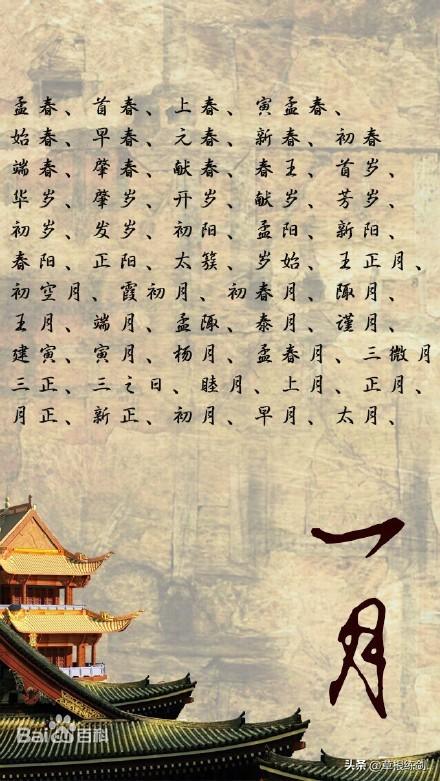 孟春、首春、上春、寅孟春、
始春、早春、元春、新春、初春
端春、肇春、献春、春王、首岁、
华岁、肇岁、开岁、献岁、芳岁、
初岁、发岁、初阳、孟阳、新阳、
春阳、正阳、太簇、岁始、王正月、
初空月、霞初月、初春月、陬月、
王月、端月、孟陬、泰月、谨月、
建寅、寅月、杨月、孟春月、三微月
三正、三之日、睦月、上月、正月、
月正、新正、初月、早月、太月、
一月
Bai百科
头条 @草根练剑